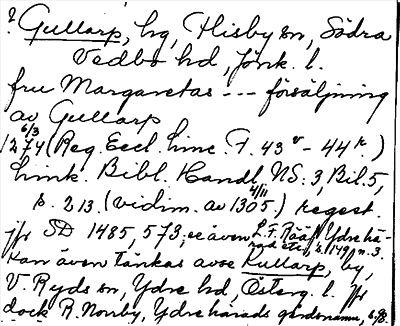 ? Gullarp, hg, Flisby sn, Södra
Vedbo hd, Jönk. l.
fru Margaretas --- försäljning
av Gullarp
6/3
1274 (Reg. Eccl. Linc. F. 43 v - 44 r.)
Link. Bibl. Handl. NS: 3, Bil. 5,
s. 213. (vidim. av 4/11 1305) regest.
jfr SD 1485, 573; se även L. F. Rääf Ydre hä-
rad etc., s. 149 n. 3.
Kan även tänkas avse Kullarp, by,
V. Ryds sn, Ydre hd, Österg. l. jfr
dock R. Norrby, Ydre härads gårdsnamn, s. 98.